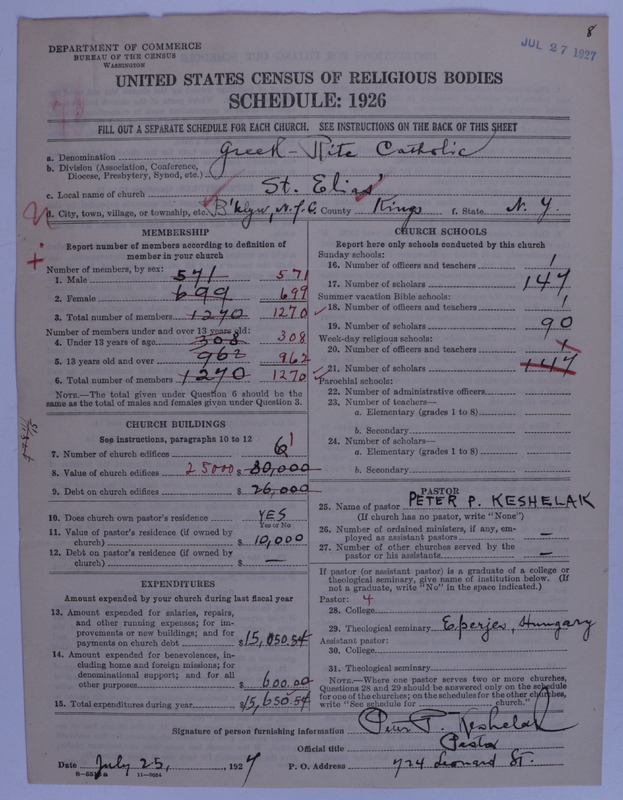 8
JUL 27 1927
DEPARTMENT OF COMMERCE
BUREAU OF THE CENSUS
WASHINGTON
UNITED STATES CENSUS OF RELIGIOUS BODIES
SCHEDULE: 1926
FILL OUT A SEPARATE SCHEDULE FOR EACH CHURCH. SEE INSTRUCTIONS ON THE BACK OF THIS SHEET
a. Denomination Greek-Rite Catholic
b. Division (Association, Conference, Diocese, Presbytery, Synod, etc.)
c. Local name of church St. Elias'
d. City, town, village, or township, etc. B'klyn, N.Y.C. County Kings f. State N.Y.
MEMBERSHIP
Report number of members according to definition of member in your church
Number of members, by sex:
1. Male 571 571
2. Female 699 699
3. Total number of members 1270 1270
Number of members under and over 13 years old:
4. Under 13 years of age 308 308
5. 13 years old and over 962 962
6. Total number of members 1270 1270
NOTE.—The total given under Question 6 should be the same as the total of males and females given under Question 3.
CHURCH BUILDINGS
See instructions, paragraphs 10 to 12
7. Number of church edifices 1
8. Value of church edifices 25000 $ 80,000
9. Debt on church edifices $ 26,000
10. Does church own pastor's residence YES
Yes or No
11. Value of pastor's residence (if owned by church) $ 10,000
12. Debt on pastor's residence (if owned by church) $ —
EXPENDITURES
Amount expended by your church during last fiscal year
13. Amount expended for salaries, repairs, and other running expenses; for improvements or new buildings; and for payments on church debt $15,050.54
14. Amount expended for benevolences, including home and foreign missions; for denominational support; and for all other purposes $ 600.00
15. Total expenditures during year $15,650.54
CHURCH SCHOOLS
Report here only schools conducted by this church
Sunday schools:
16. Number of officers and teachers 1
17. Number of scholars 147
Summer vacation Bible schools:
18. Number of officers and teachers 1
19. Number of scholars 90
Week-day religious schools:
20. Number of officers and teachers 1
21. Number of scholars 147
Parochial schools:
22. Number of administrative officers
23. Number of teachers—
a. Elementary (grades 1 to 8)
b. Secondary
24. Number of scholars—
a. Elementary (grades 1 to 8)
b. Secondary
PASTOR
25. Name of pastor PETER P. KESHELAK
(If church has no pastor, write "None")
26. Number of ordained ministers, if any, employed as assistant pastors —
27. Number of other churches served by the pastor or his assistants —
If pastor (or assistant pastor) is a graduate of a college or theological seminary, give name of institution below. (If not a graduate, write "No" in the space indicated.)
Pastor: 4
28. College
29. Theological seminary Eperjes, Hungary
Assistant pastor:
30. College
31. Theological seminary
NOTE.—Where one pastor serves two or more churches, Questions 28 and 29 should be answered only on the schedule for one of the churches; on the schedules for the other churches, write "See schedule for church."
Signature of person furnishing information Peter P. Keshelak
Official title Pastor
Date July 25, 1927 P. O. Address 724 Leonard St.
11—9034